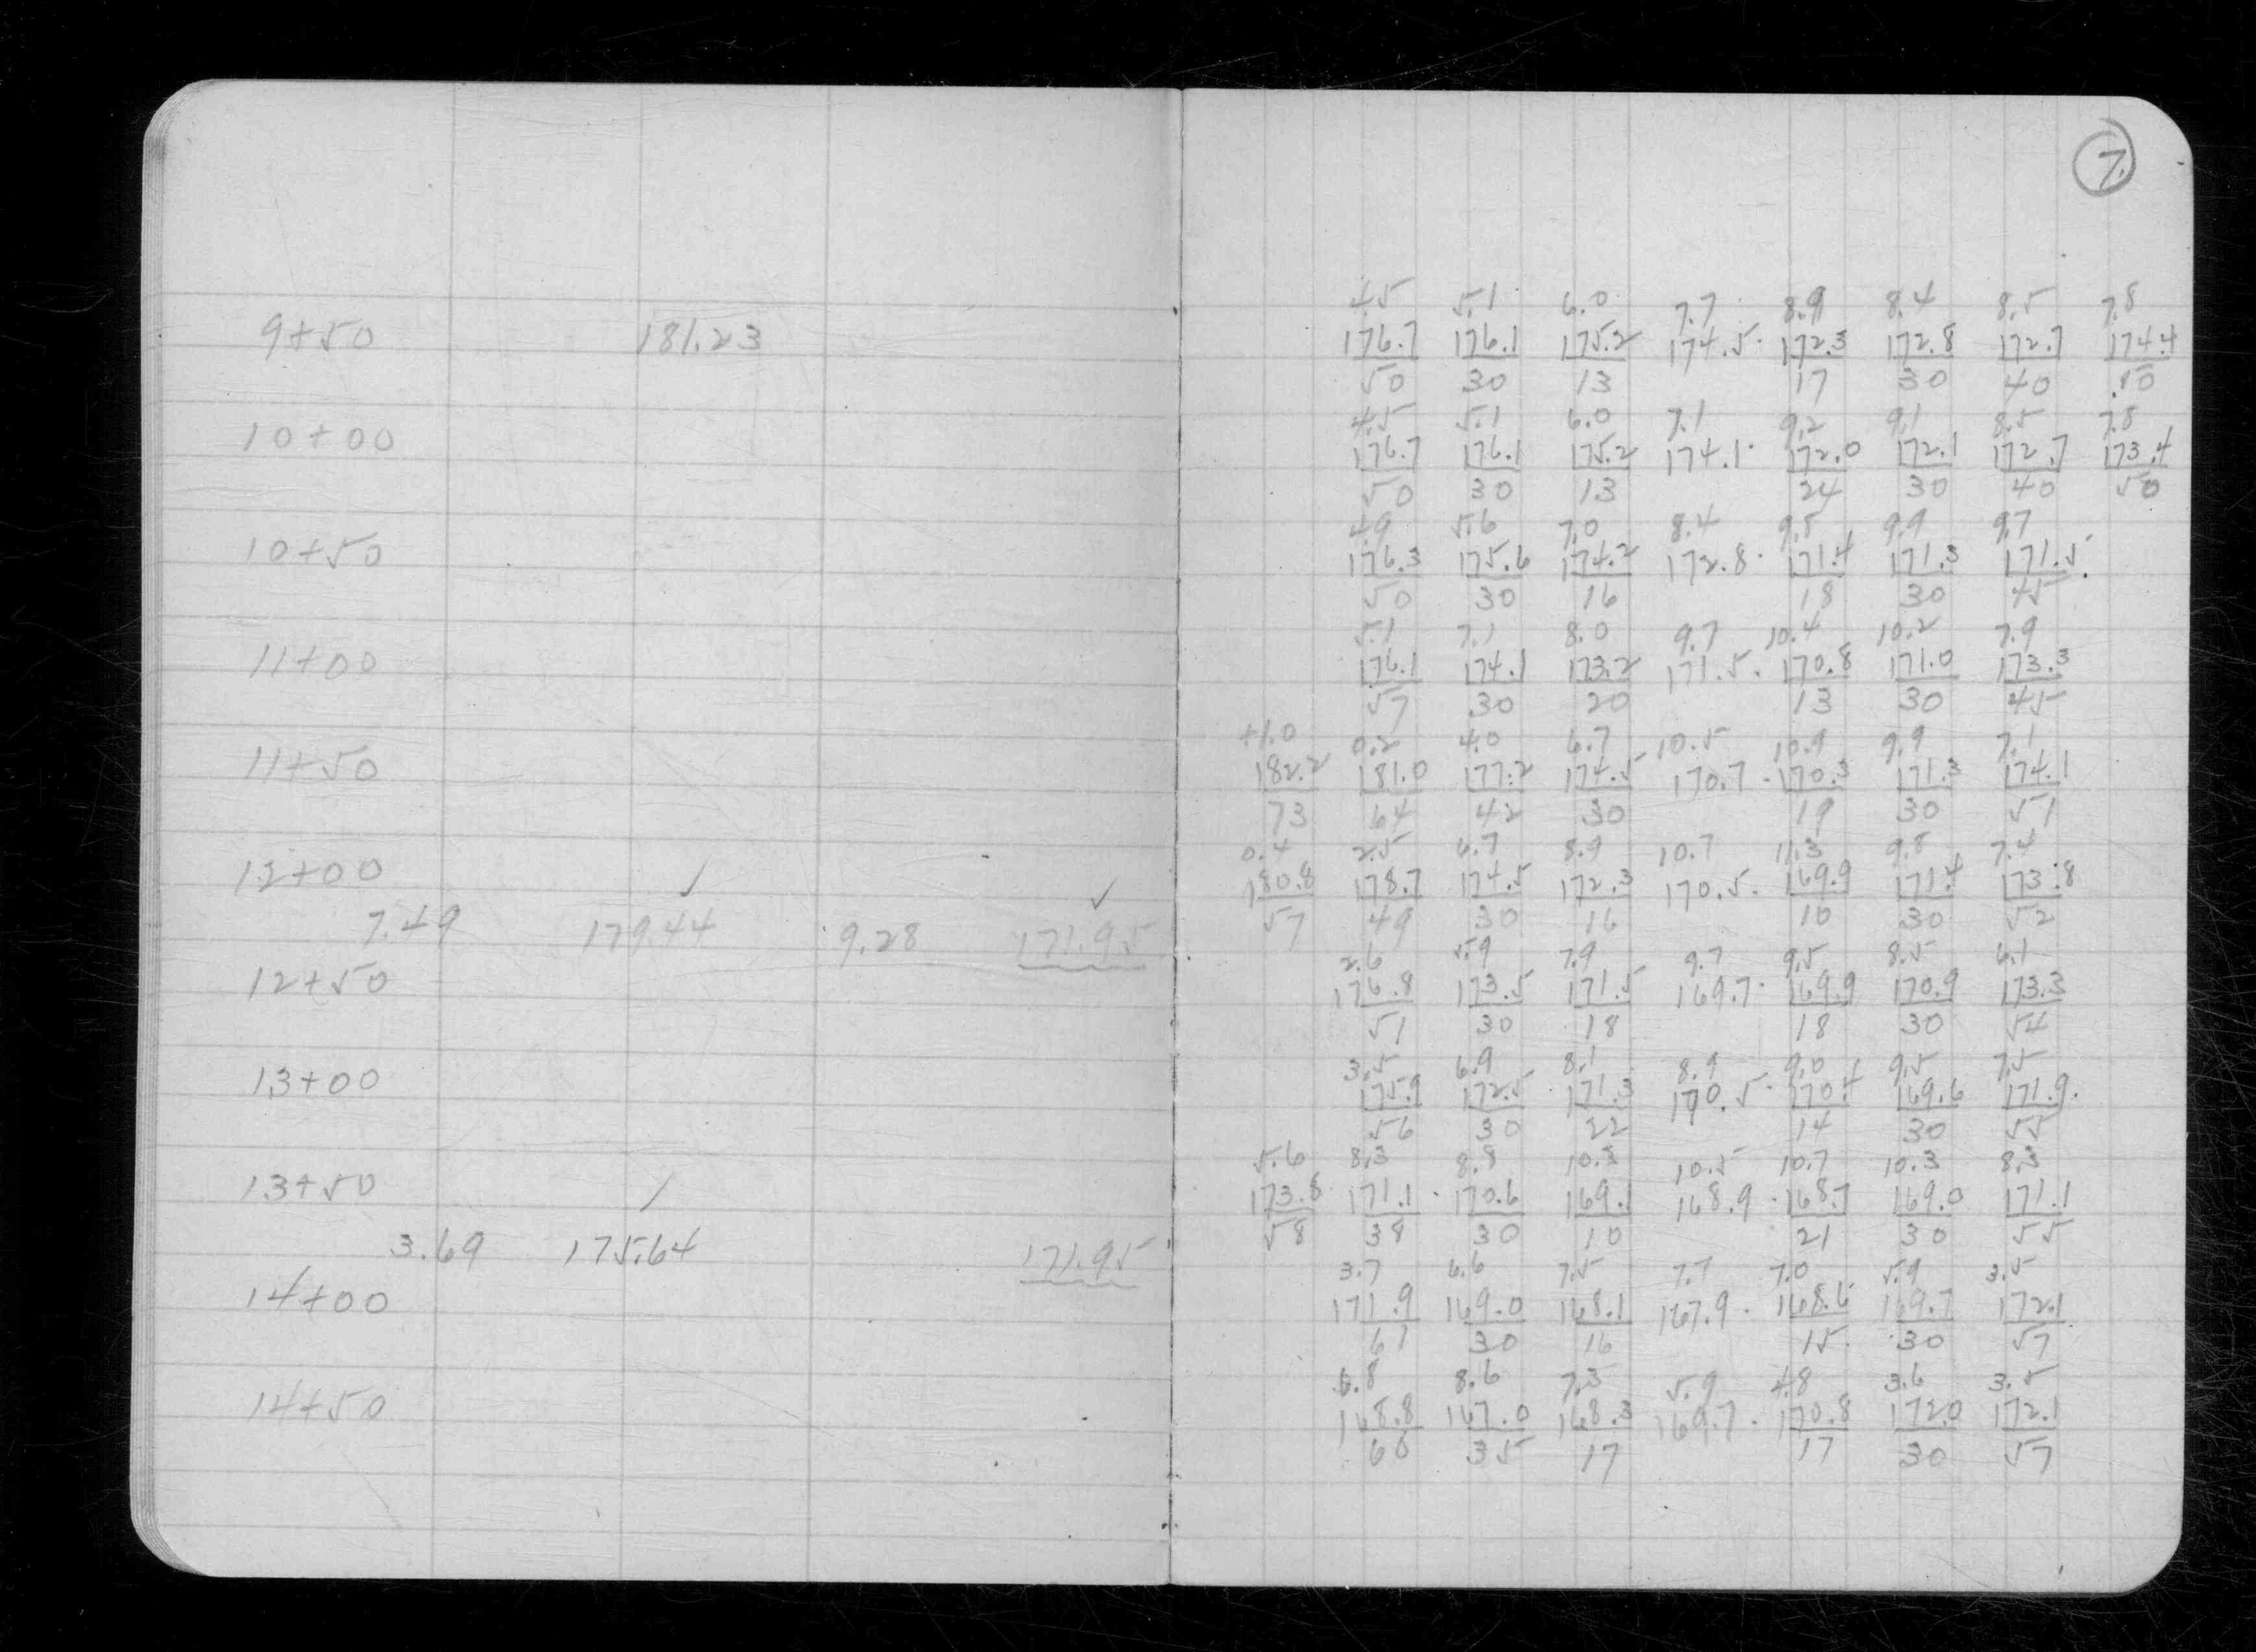 7.
4.5 5.1 6.0 7.7 8.9 8.4 8.5 7.8
9+50 181.23 176.7 176.1 175.2 174.5. 172.3 172.8 172.7 174.4
50 30 13 17 30 40 50
4.5 5.1 6.0 7.1 9.2 9.1 8.5 7.8
10+00 176.7 176.1 175.2 174.1. 172.0 172.1 172.7 173.4
50 30 13 24 30 40 50
4.9 5.6 7.0 8.4 9.8 9.9 9.7
10+50 176.3 175.6 174.2 172.8. 171.4 171.3 171.5
50 30 16 18 30 45
5.1 7.1 8.0 9.7 10.4 10.2 7.9
11+00 176.1 174.1 173.2 171.5. 170.8 171.0 173.3
57 30 20 13 30 45
+1.0 0.2 4.0 6.7 10.5 10.9 9.9 7.1
11+50 182.2 181.0 177.2 174.5 170.7. 170.3 171.3 174.1
73 64 42 30 19 30 51
0.4 2.5 6.7 8.9 10.7 11.3 9.8 7.4
12+00 ✓ ✓ 180.8 178.7 174.5 172.3 170.5. 169.9 171.4 173.8
7.49 179.44 9.28 171.95 57 49 30 16 10 30 52
2.6 5.9 7.9 9.7 9.5 8.5 6.1
12+50 176.8 173.5 171.5 169.7. 169.9 170.9 173.3
51 30 18 18 30 54
3.5 6.9 8.1 8.9 9.0 9.5 7.5
13+00 175.9 172.5 171.3 170.5. 170.4 169.6 171.9.
56 30 22 14 30 55
5.6 8.3 8.8 10.3 10.5 10.7 10.3 8.3
13+50 / 173.8 171.1 170.6 169.1 168.9. 168.7 169.0 171.1
3.69 175.64 171.95 58 38 30 10 21 30 55
3.7 6.6 7.5 7.7 7.0 5.9 3.5
14+00 171.9 169.0 168.1 167.9. 168.6 169.7 172.1
61 30 16 15 30 57
6.8 8.6 7.3 5.9 4.8 3.6 3.5
14+50 168.8 167.0 168.3 169.7. 170.8 172.0 172.1
60 35 17 17 30 57